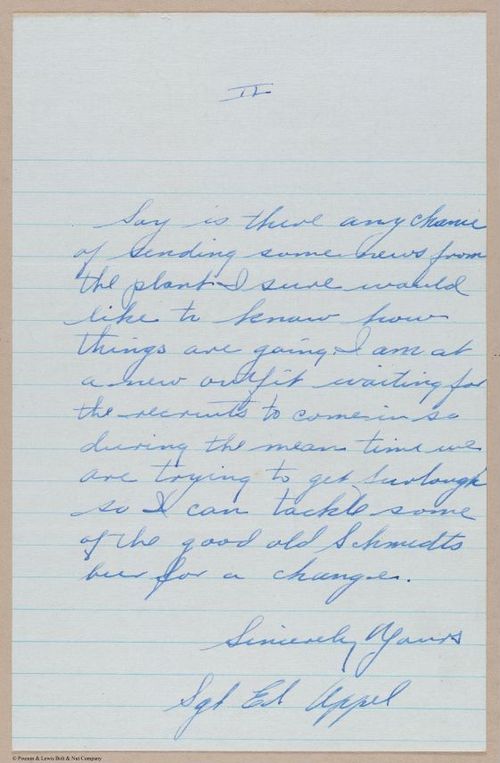 II
Say is there any chance
of sending some news from
the plant I sure would
like to know how
things are going. I am at
a new outfit waiting for
the recruits to come in so
during the mean time we
are trying to get furlough
so I can tackle some
of the good old Schmidts
beer for a change.
Sincerely Yours
Sgt Ed Appel
© Penmin & Lewis Bolt & Nut Company